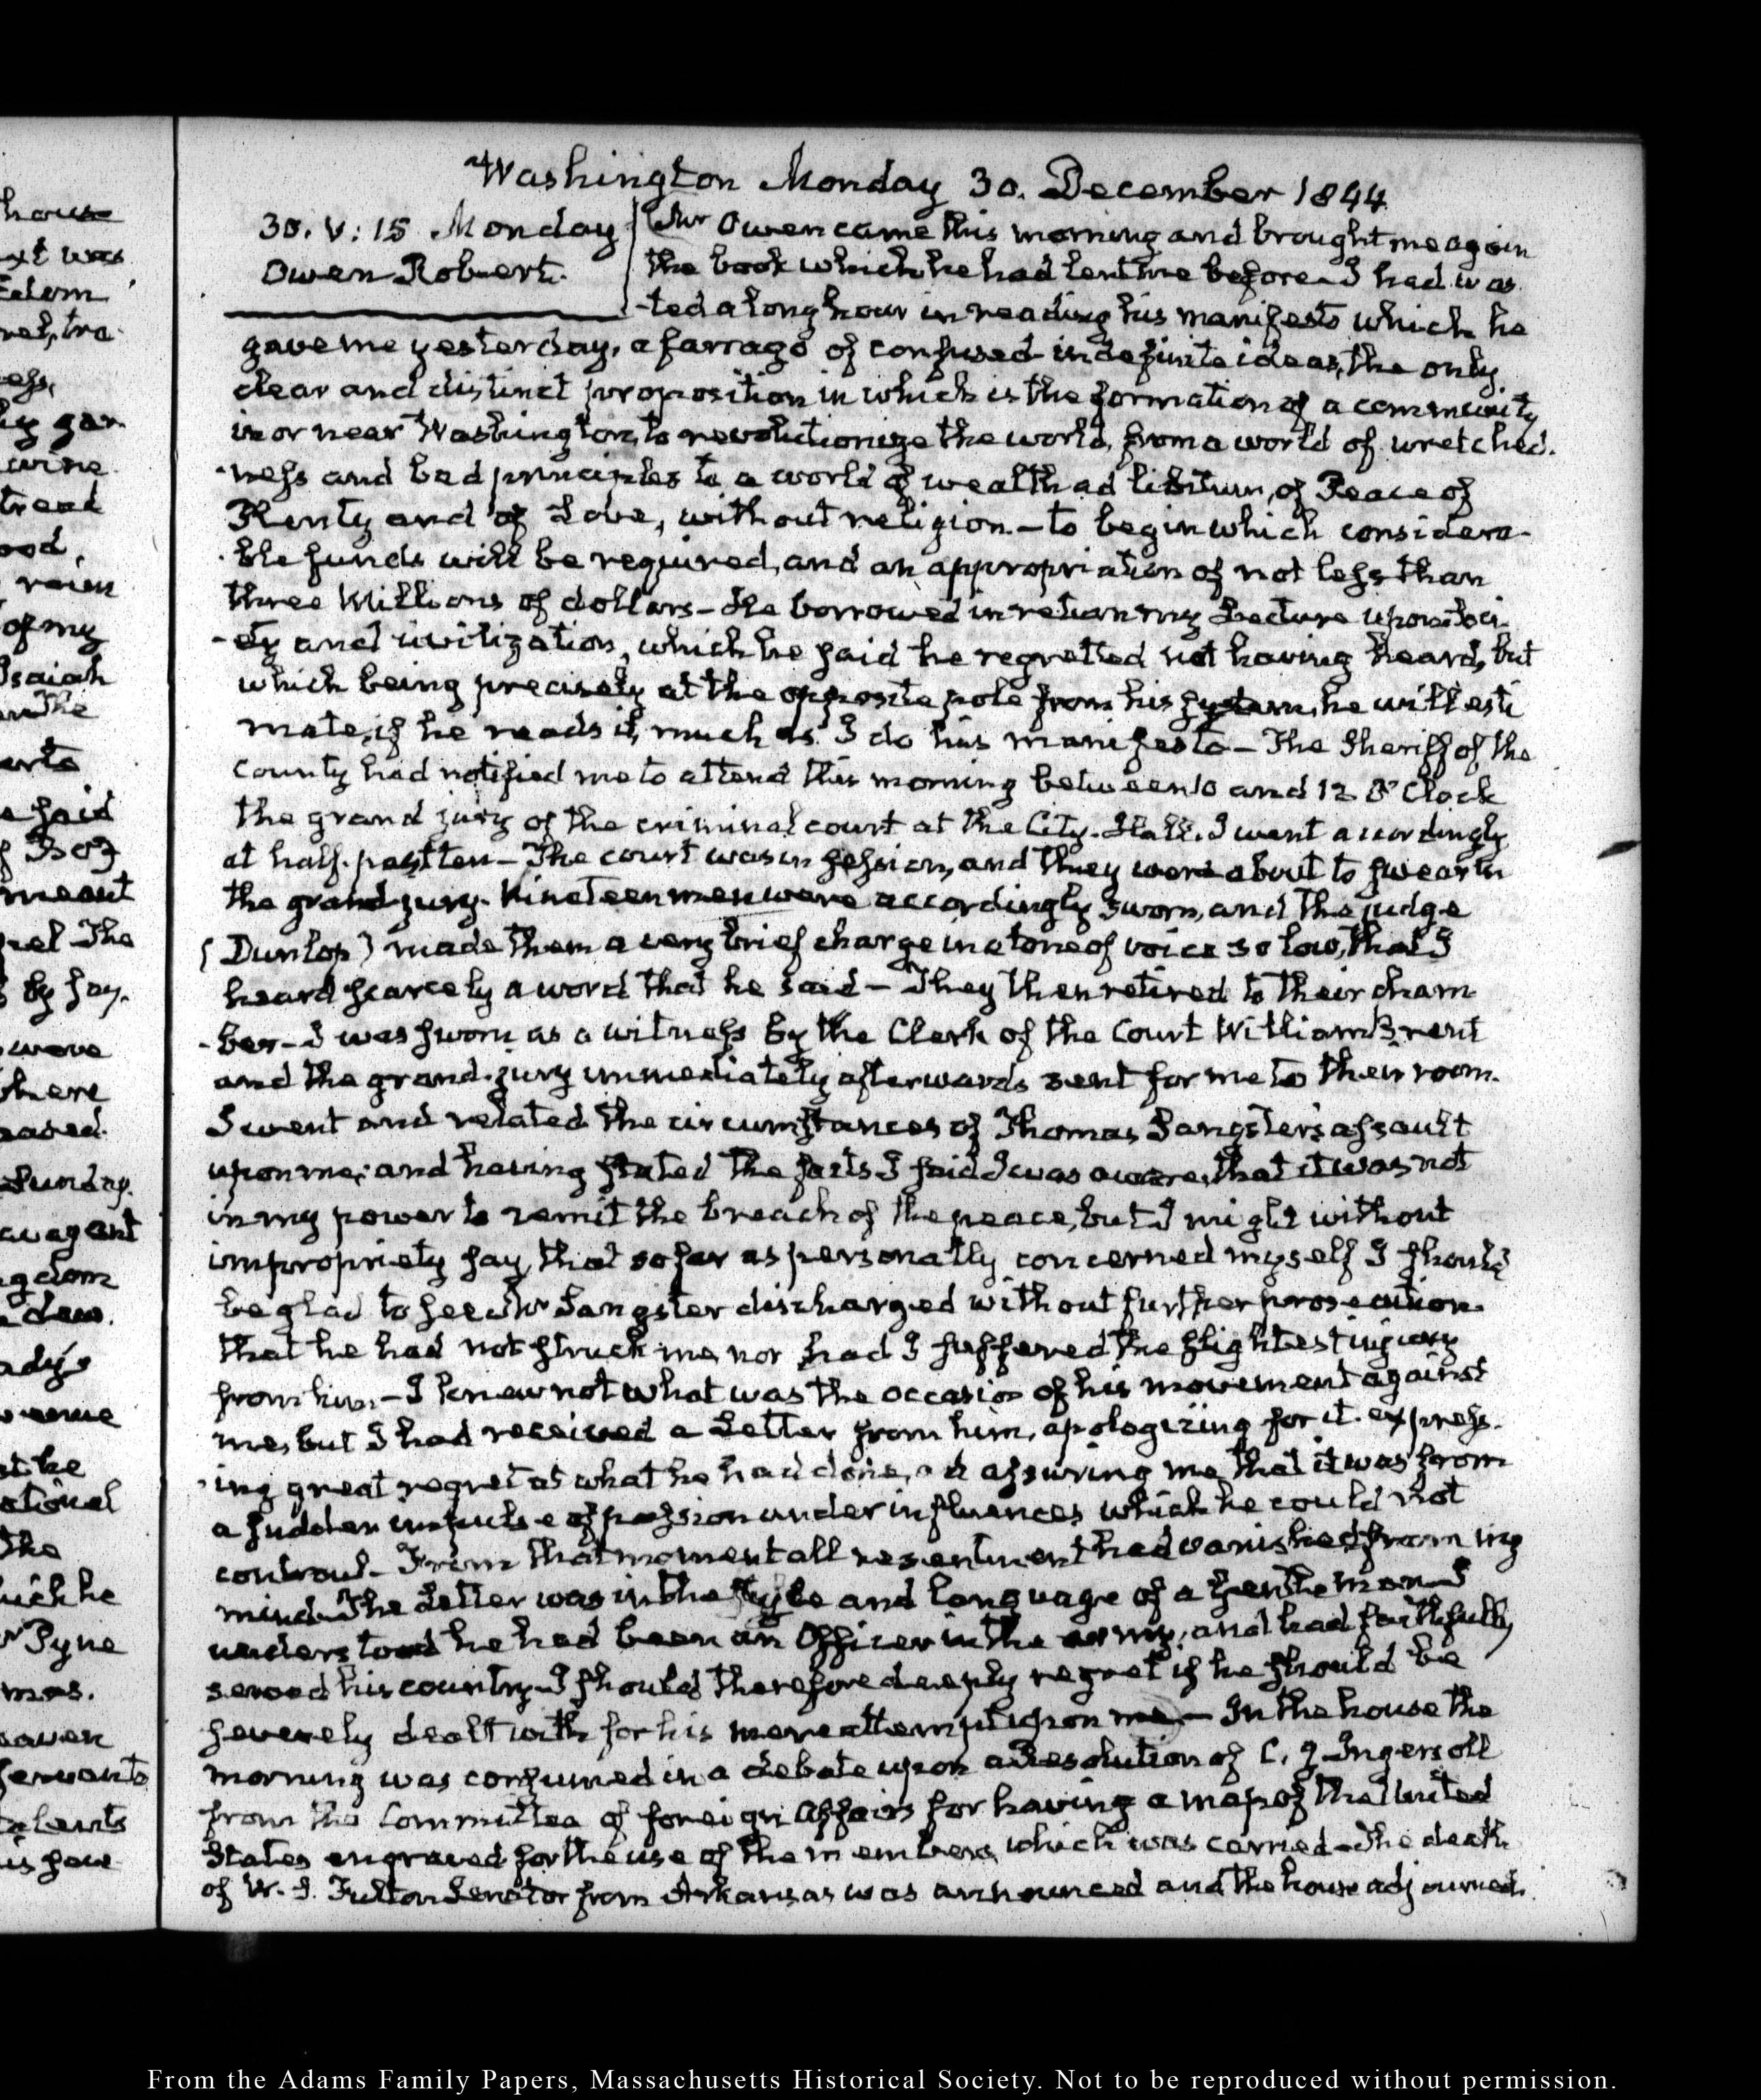 house
xt was
Edom
tra
cess,
ly gar
wine
tread
ood,
rein
of my
Isaiah
The
erts
e said
of Boz
meant
rel The
s by say.
were
there
eased.
Sunday.
avagant
gdom
dew.
ady's
venue
st be
ational
the
which he
Mr Pyne
mas.
eaven
servants
talents
is pow
Washington Monday 30. December 1844
30. V: 15 Monday
Owen Robert.
Mr Owen came this morning and brought me again
the book which he had lent me before. I had was
-ted a long hour in reading his manifesto which he
gave me yesterday, a farrago of confused indefinite ideas, the only
clear and distinct proposition in which is the formation of a community
in or near Washington, to revolutionize the world, from a world of wretched.
-ness and bad principles to a world of wealth ad libitum, of Peace of
Plenty and of Love, without religion.—to begin which considera-
-ble funds will be required, and an appropriation of not less than
three Millions of dollars—He borrowed in return my Lecture upon Soci-
-ety and civilization, which he said he regretted not having heard, but
which being precisely at the opposite pole from his system, he will esti
mate, if he reads it, much as I do his manifesto—The Sheriff of the
county had notified me to attend this morning between 10 and 12 O'Clock
the grand jury of the criminal court at the City-Hall. I went accordingly
at half-past ten—The court was in session, and they were about to swear in
the grand-jury. Nineteen men were accordingly sworn, and the judge
(Dunlop) made them a very brief charge in a tone of voice so low, that I
heard scarcely a word that he said—They then retired to their cham
-ber—I was sworn as a witness by the Clerk of the Court William Brent
and the grand-jury immediately afterwards sent for me to their room.
I went and related the circumstances of Thomas Sangster's assault
upon me; and having stated the facts I said I was aware, that it was not
in my power to remit the breach of the peace, but I might without
impropriety say, that so far as personally concerned myself I should
be glad to see Mr Sangster discharged without further prosecution.
that he had not struck me, nor had I suffered the slightest injury
from him.—I knew not what was the occasion of his movement against
me, but I had received a Letter from him, apologizing for it. express.
-ing great regret at what he had done, and assuring me that it was from
a sudden impulse of passion under influences which he could not
controul—From that moment all resentment had vanished from my
mind—The Letter was in the style and language of a Gentleman—I
understood he had been an Officer in the army, and had faithfully
served his country—I should therefore deeply regret if he should be
severely dealt with for his mere attempt upon me—In the house the
morning was consumed in a debate upon a Resolution of C. J. Ingersoll
from the Committee of foreign Affairs for having a map of the United
States engraved for the use of the members, which was carried—The death
of W. S. Fulton Senator from Arkansas was announced and the house adjourned.
From the Adams Family Papers, Massachusetts Historical Society. Not to be reproduced without permission.